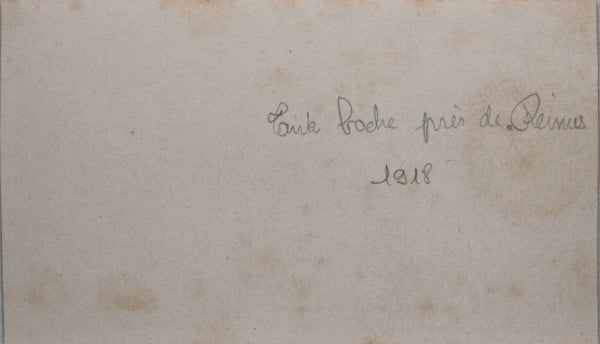 Tank boche près de Reims
1918